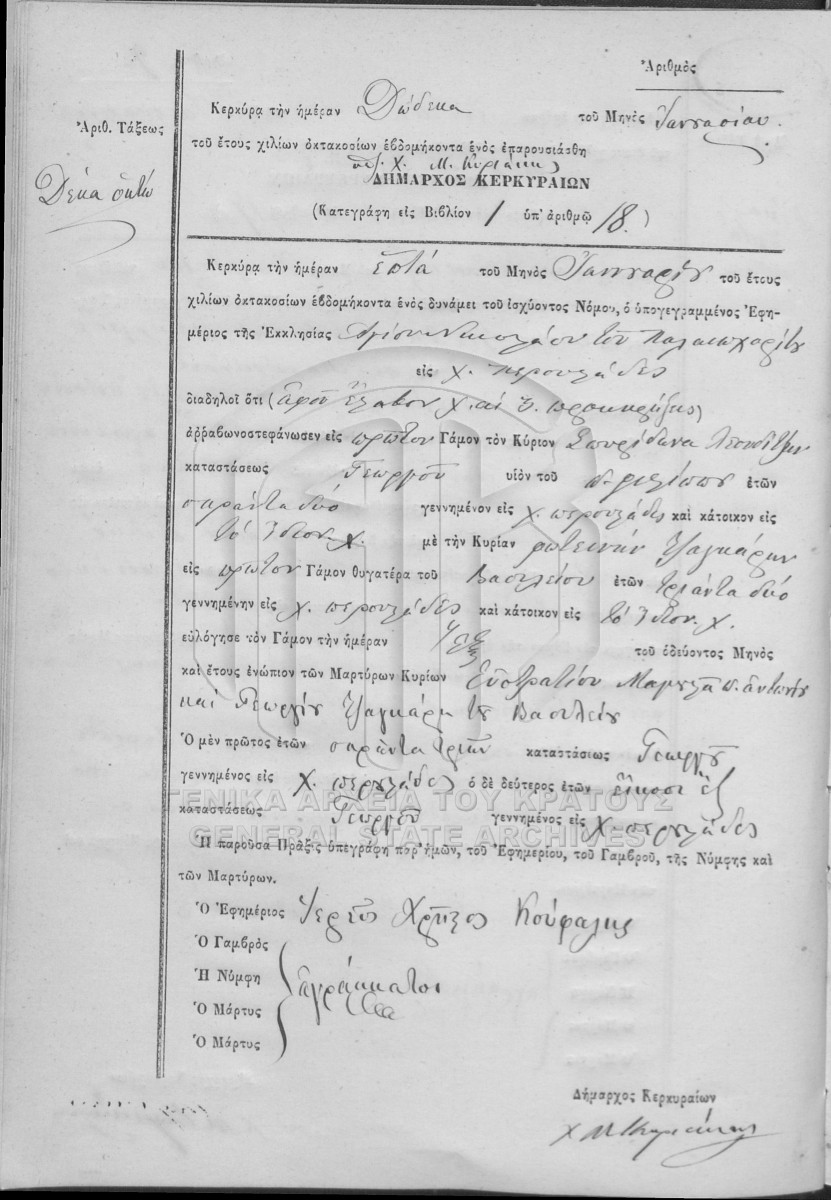 Ἀριθμὸς
Ἀριθ. Τάξεως
Δέκα ὀκτώ
Κερκύρᾳ τὴν ἡμέραν Δώδεκα τοῦ Μηνὸς Ἰαννουαρίου.
τοῦ ἔτους χιλίων ὀκτακοσίων ἑβδομήκοντα ἑνὸς ἐπαρουσιάσθη
Χ. Μ. Κυριάκης
ΔΗΜΑΡΧΟΣ ΚΕΡΚΥΡΑΙΩΝ
(Κατεγράφη εἰς Βιβλίον 1 ὑπ' ἀριθμῷ 18.)
Κερκύρᾳ τὴν ἡμέραν ἑπτά τοῦ Μηνὸς Ἰαννουαρίου τοῦ ἔτους
χιλίων ὀκτακοσίων ἑβδομήκοντα ἑνὸς δυνάμει τοῦ ἰσχύοντος Νόμου, ὁ ὑπογεγραμμένος Ἐφη-
μέριος τῆς Ἐκκλησίας Ἁγίου Νικολάου τοῦ
εἰς χ. περουλάδες
διαδηλοῖ ὅτι (ἀφοῦ ἔλαβον χ. αἱ 3. προκηρύξεις)
ἀῤῥαβωνοστεφάνωσεν εἰς πρῶτον Γάμον τὸν Κύριον Σπυρίδωνα
καταστάσεως Γεωργοῦ υἱὸν τοῦ π. φιλίππου ἐτῶν
σαράντα δύο γεννημένον εἰς χ. περουλάδες καὶ κάτοικον εἰς
τό ἴδιον. χ. μὲ τὴν Κυρίαν φωτεινήν Τζαγκάρην
εἰς πρῶτον Γάμον θυγατέρα τοῦ Βασιλείου ἐτῶν τριάντα δύο
γεννημένην εἰς χ. περουλάδες καὶ κάτοικον εἰς τό ἴδιον. χ.
εὐλόγησε τὸν Γάμον τὴν ἡμέραν τοῦ ὁδεύοντος Μηνὸς
καὶ ἔτους ἐνώπιον τῶν Μαρτύρων Κυρίων Εὐστρατίου π. ἀντωνίου
καί Γεωργίου Τζαγκάρη τοῦ Βασιλείου
Ὁ μὲν πρῶτος ἐτῶν σαράντα τριῶν καταστάσεως Γεωργοῦ
γεννημένος εἰς χ. περουλάδες ὁ δὲ δεύτερος ἐτῶν εἴκοσι ἕξ
καταστάσεως Γεωργοῦ γεννημένος εἰς χ. περουλάδες
ΓΕΝΙΚΑ ΑΡΧΕΙΑ ΤΟΥ ΚΡΑΤΟΥΣ
GENERAL STATE ARCHIVES
Ἡ παροῦσα Πρᾶξις ὑπεγράφη παρ' ἡμῶν, τοῦ Ἐφημερίου, τοῦ Γαμβροῦ, τῆς Νύμφης καὶ
τῶν Μαρτύρων.
Ὁ Ἐφημέριος Ἱερεύς Χρῆστος Κούφαλης
Ὁ Γαμβρὸς
Ἡ Νύμφη ἀγράμματοι
Ὁ Μάρτυς
Ὁ Μάρτυς
Δήμαρχος Κερκυραίων
Χ Μ Κυριάκης